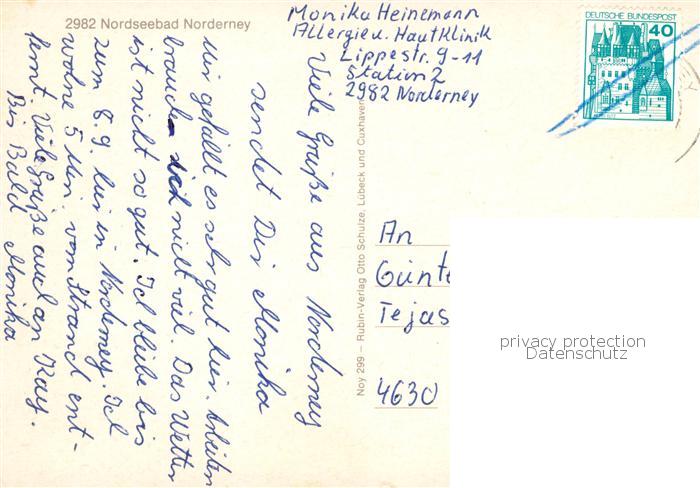 2982 Nordseebad Norderney
Monika Heinemann
Allergie u. Hautklinik
Lippestr. 9-11
Station 2
2982 Norderney
DEUTSCHE BUNDESPOST
40
Viele Grüße aus Norderney
sendet Dir Monika
Mir gefällt es sehr gut hier. Arbeiten
brauche ich nicht viel. Das Wetter
ist nicht so gut. Ich bleibe bis
zum 8.9. hier in Norderney. Ich
wohne 5 Min. vom Strand ent-
fernt. Viele Grüße auch an Kay.
Bis Bald Monika
Noy 299 – Rubin-Verlag Otto Schulze, Lübeck und Cuxhaven
An
Günte
Tejas
4630
privacy protection
Datenschutz